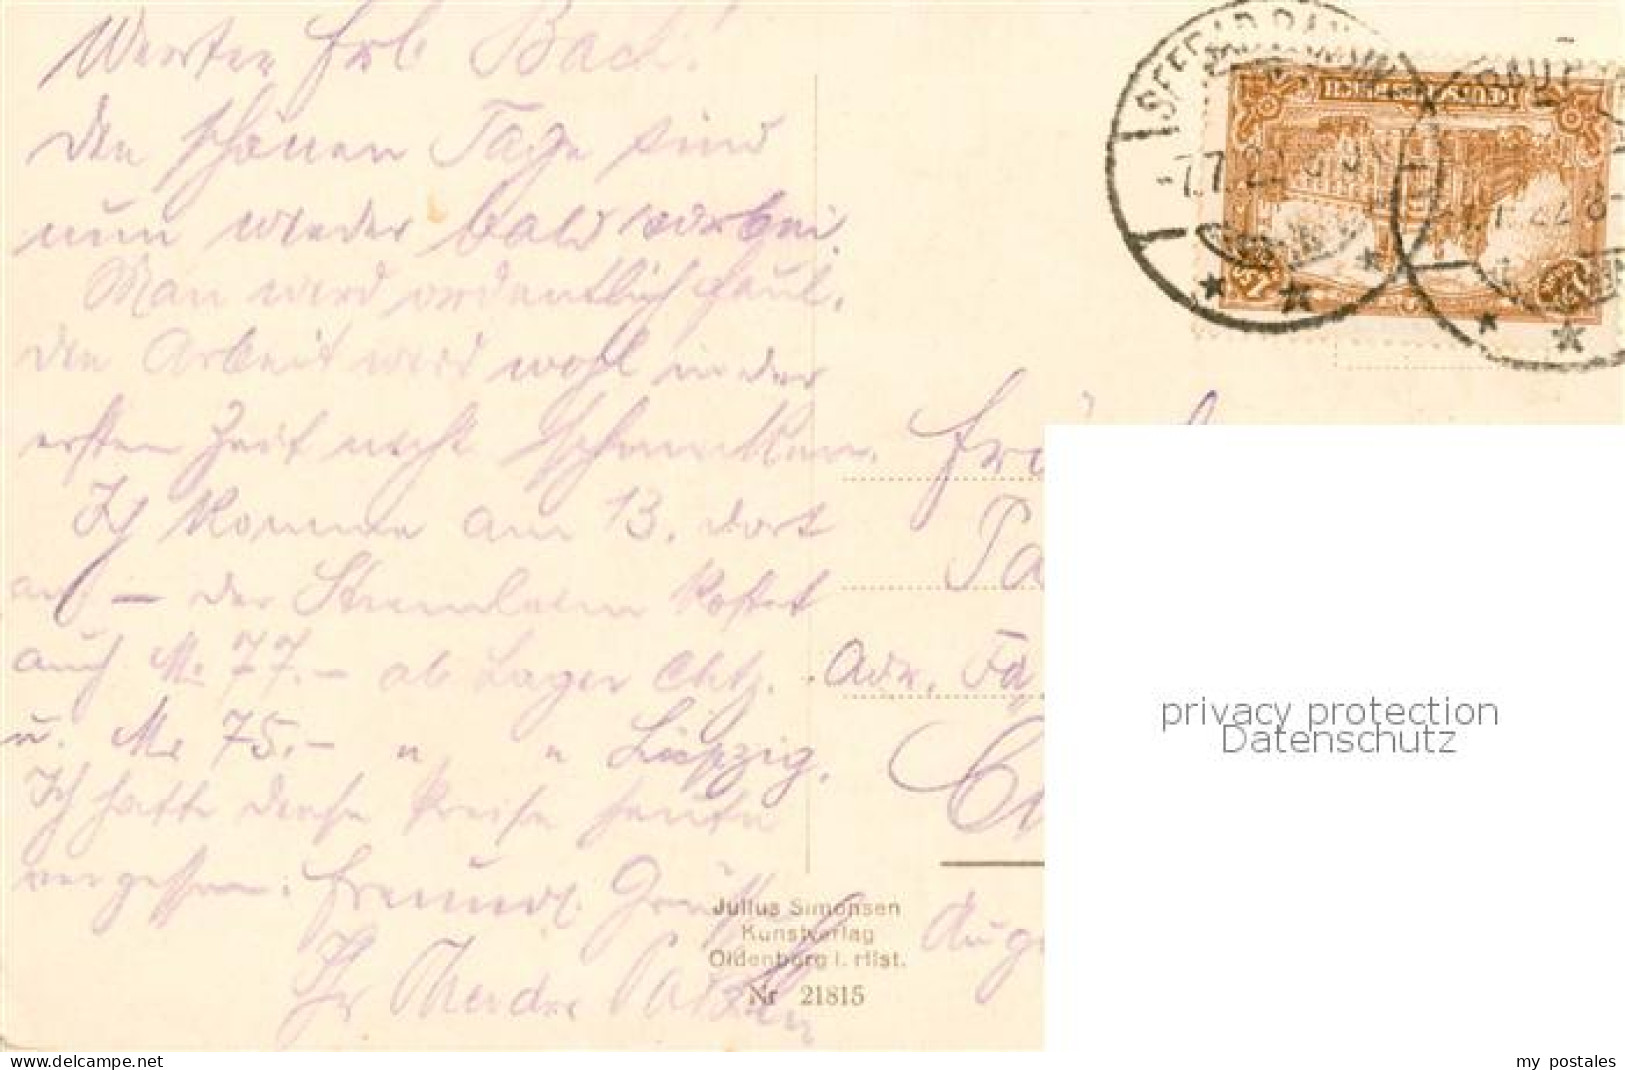 Werter Frl. Bach!
Die schönen Tage sind
nun wieder bald vorbei.
Man wird ordentlich faul,
die Arbeit wird wohl in der
ersten Zeit nicht schmecken.
Ich komme am 13. dort
an – der kostet
auch M. 77.– ab Lager Chtz.
u. M. 75.– " " Leipzig.
Ich hatte diese Preise heute
vergessen. Freundl. Grüße
Ihr
DEUTSCHES REICH
-7.7.22
Adr. Fa.
Julius Simonsen
Kunstverlag
Oldenburg i. Hlst.
Nr 21815
privacy protection
Datenschutz
my_postales.com
my_postales